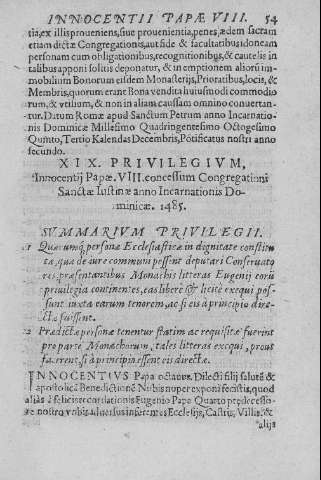 INNOCENTII PAPÆ VIII. 54
tia, ex illis proueniens, siue prouenientia, penes, ædem sacram
etiam dictæ Congregationis, aut fide & facultatibus idoneam
personam cum obligationibus, recognitionibus, & cautelis in
talibus apponi solitis deponatur, & in emptionem aliorũ im-
mobilium Bonorum eisdem Monasterijs, Prioratibus, locis, &
Membris, quorum erant Bona vendita huiusmodi commodio
rum, & vtilium, & non in aliam caussam omnino conuertan-
tur. Datum Romæ apud Sanctum Petrum anno Incarnatio-
nis Dominicæ Millesimo Quadringentesimo Octogesimo
Quinto, Tertio Kalendas Decembris, Põtificatus nostri anno
secundo.
XIX. PRIVILEGIVM,
Innocentij Papæ. VIII. concessum Congregationi
Sanctæ Iustinæ anno Incarnationis Do-
minicæ. 1485.
SVMMARIVM PRIVILEGII.
1 Quæcunq; personæ Ecclesiasticæ in dignitate constitu
tæ, quæ de iure communi possent deputari Conseruato
res, præsentantibus Monachis litteras Eugenij eorũ
priuilegia continentes, eas libere & licitè exequi pos-
sunt iuxta earum tenorem, ac si eis à principio dire-
ctæ fuissent.
2 Prædictæ personæ tenentur statim ac requisitæ fuerint
pro parte Monachorum, tales litteras exequi, prout
facerent, si à principio essent eis directæ.
INNOCENTIVS Papa octauus. Dilecti filij salutẽ &
apostolicã Benedictionẽ Nobis nuper exponi fecistis, quod
aliàs à felicis recordationis Eugenio Papa Quarto prędecesso-
re nostro vobis aduersus inferentes Ecclesijs, Castris, Villis, &
alijs